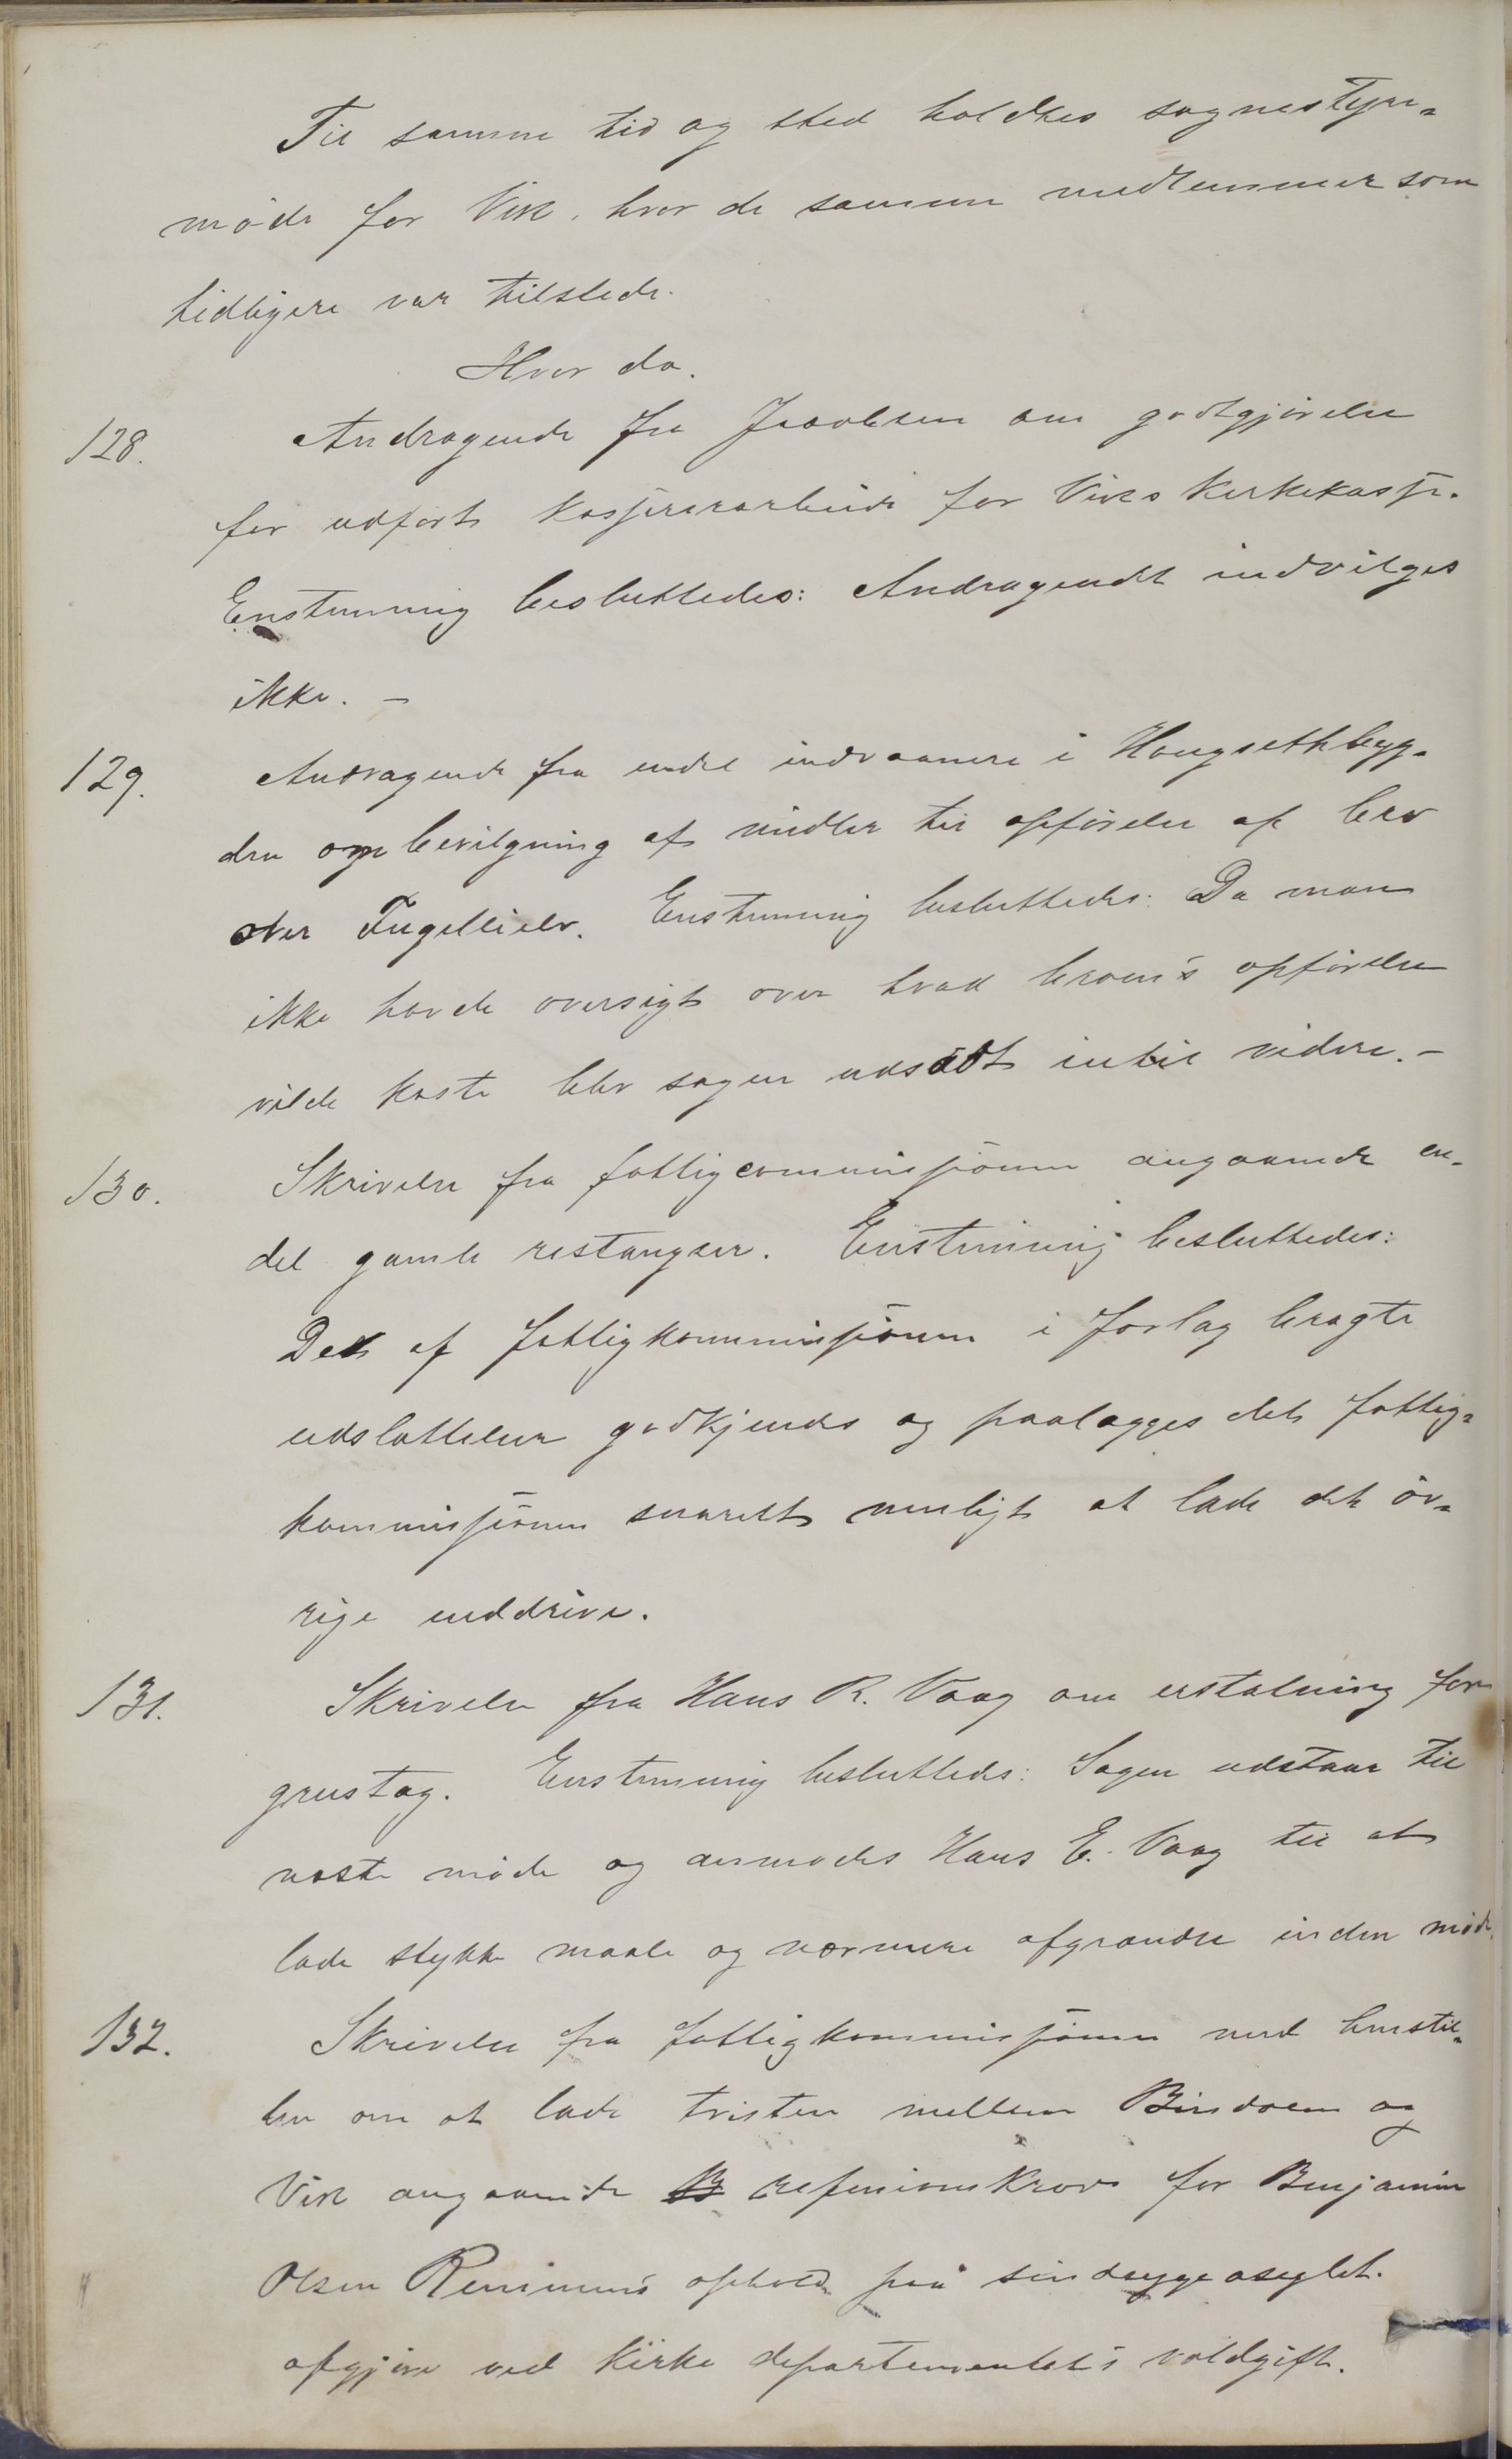 Til samme tid og sted holdtes sognestyre-
möde for Vik, hvor de samme medlemmer som
tidligere var tilstede.
Hvor da.
128. Andragende fra Jacobsen om godtgjörelse
for udfört kasjererarbeide for Viks kirkekasse.
Enstemmig besluttedes: Andragendet indvilges
ikke. –
129. Andragende fra endel indvaanere i Hongsethbyg-
den om bevilgning af midler til opförelse af bro
over Fugellielv. Enstemmig besluttedes: Da man
ikke havde oversigt over hvad broens opförelse
vilde koste blev sagen udsat indtil videre. –
130. Skrivelse fra fattigcommissjonen angaaende en-
del gamle restangser. Enstemmig besluttedes:
De af fattigkommissjonen i forslag bragte
udslettelser godkjendes og paalægges det fattig-
kommissjonen snarest muligt at lade det öv-
rige inddrive.
131. Skrivelse fra Hans R. Vaag om erstatning for
grustag. Enstemmig besluttedes: Sagen udstaar til
næste möde og anmodes Hans E. Vaag til at
lade stykke maale og nærmere afgrændse inden möde.
132. Skrivelse fra fattigkommissjonen med henstil-
len om at lade tvisten mellem Bindalen og
Vik angaaende refusionskrav for Benjamin
Olsen ophold paa sindsygeasylet.
afgjöre ved Kirke departementets voldgift.